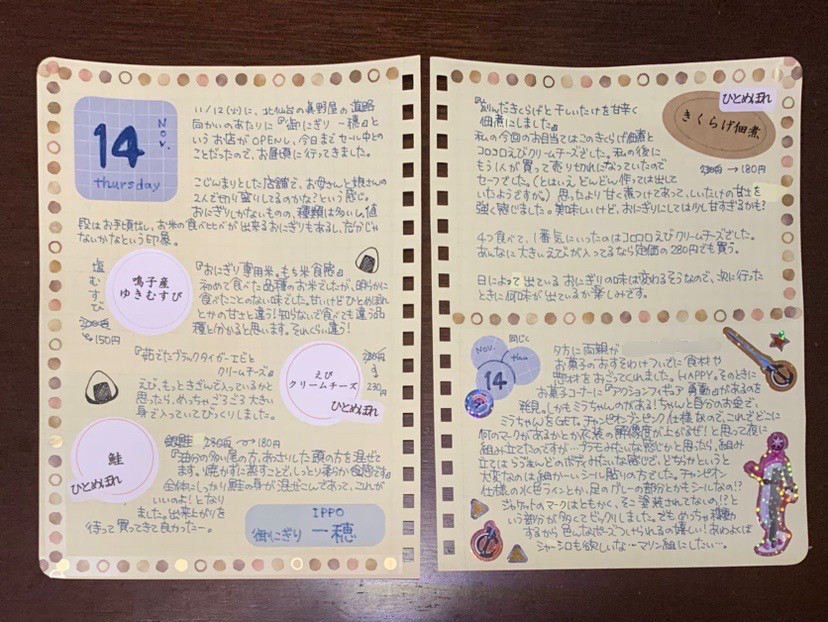 14
NOV.
thursday
11/12(火)に、北仙台の真野屋の道路
向かいのあたりに『御にぎり 一穂』と
いうお店がOPENし、今日までセール中との
ことだったので、お昼頃に行ってきました。
こじんまりとした店舗で、お母さんと娘さんの
2人で切り盛りしてるのかな?という感じ。
おにぎりしかないものの、種類は多いし、値
段はお手頃だし、お米の食べ比べが出来るおにぎりもあるし、だからじゃ
ないかなという印象。
塩むすび
300円
150円
鳴子産
ゆきむすび
『おにぎり専用米。もち米食感』
初めて食べた品種のお米でしたが、明らかに
食べたことのない味でした。甘いけどひとめぼれ
とかの甘さと違う!知らないで食べても違う品
種と分かると思います。それくらい違う!
『茹でたブラックタイガーエビと
クリームチーズ』
えび、もっときざんで入っているかと
思ったら、めっちゃごろごろ大きい
身で入っていてびっくりしました。
えび
クリームチーズ
ひとめぼれ
280円
230円
鮭
ひとめぼれ
銀鮭 230円→180円
『油分の多い尾の方、あっさりした頭の方を混ぜて
ます。焼かずに蒸すことで、しっとり柔らか食感です』
全体にしっかり鮭の身が混ぜこんであって、これが
いいのよ!となり
ました。出来上がりを
待って買ってきて良かったー。
IPPO
御にぎり 一穂
『刻んだきくらげと干しいたけを甘辛く
佃煮にしました』
ひとめぼれ
きくらげ佃煮
230円→180円
私の今回のお目当てはこのきくらげ佃煮と
コロコロえびクリームチーズでした。私の後に
もう1人が買って売り切れになっていたので
セーフでした。(とはいえどんどん作っては出して
いたようですが。)思ったより甘く煮つけてあって、しいたけの甘さを
強く感じました。美味しいけど、おにぎりにしては少し甘すぎるかも?
4つ食べて、1番気にいったのはコロコロえびクリームチーズでした。
あんなに大きいえびが入ってるなら定価の280円でも買う。
日によって出ているおにぎりの味は変わるそうなので、次に行った
ときに何味が出ているか楽しみです。
NOV.
14
thu
同じく
夕方に両親が
お菓子のおすそわけついでに食材や
惣材をおごってくれました。HAPPY。そのときに
お菓子コーナーに『アクションフィギュア 勇動』があるのを
発見。しかもミラちゃんのがある!ちゃんと自分のお金で、
ミラちゃんをGET。チャンピオンズトピック仕様なので、これでどこに
何のマークがあるかとか衣装の解像度が上がるぜ!と思って夜に
組み立てたのですが…プラモみたいな感じかと思ったら、組み
立てはらうまんとのボディみたいな感じで、どちらかというと
大変なのは細かーいシール貼りの方でした。チャンピオン
仕様の水色ラインとか、足のグレーの部分とかもシールなの!?
ジャケットのマークはともかく、そこ塗装されてないの!?と
いう部分が多くてビックリしました。でもめっちゃ稼動
するから色んなポーズつけられるの嬉しい!あわよくば
シャーシロも欲しいな…マリン組にしたい…。